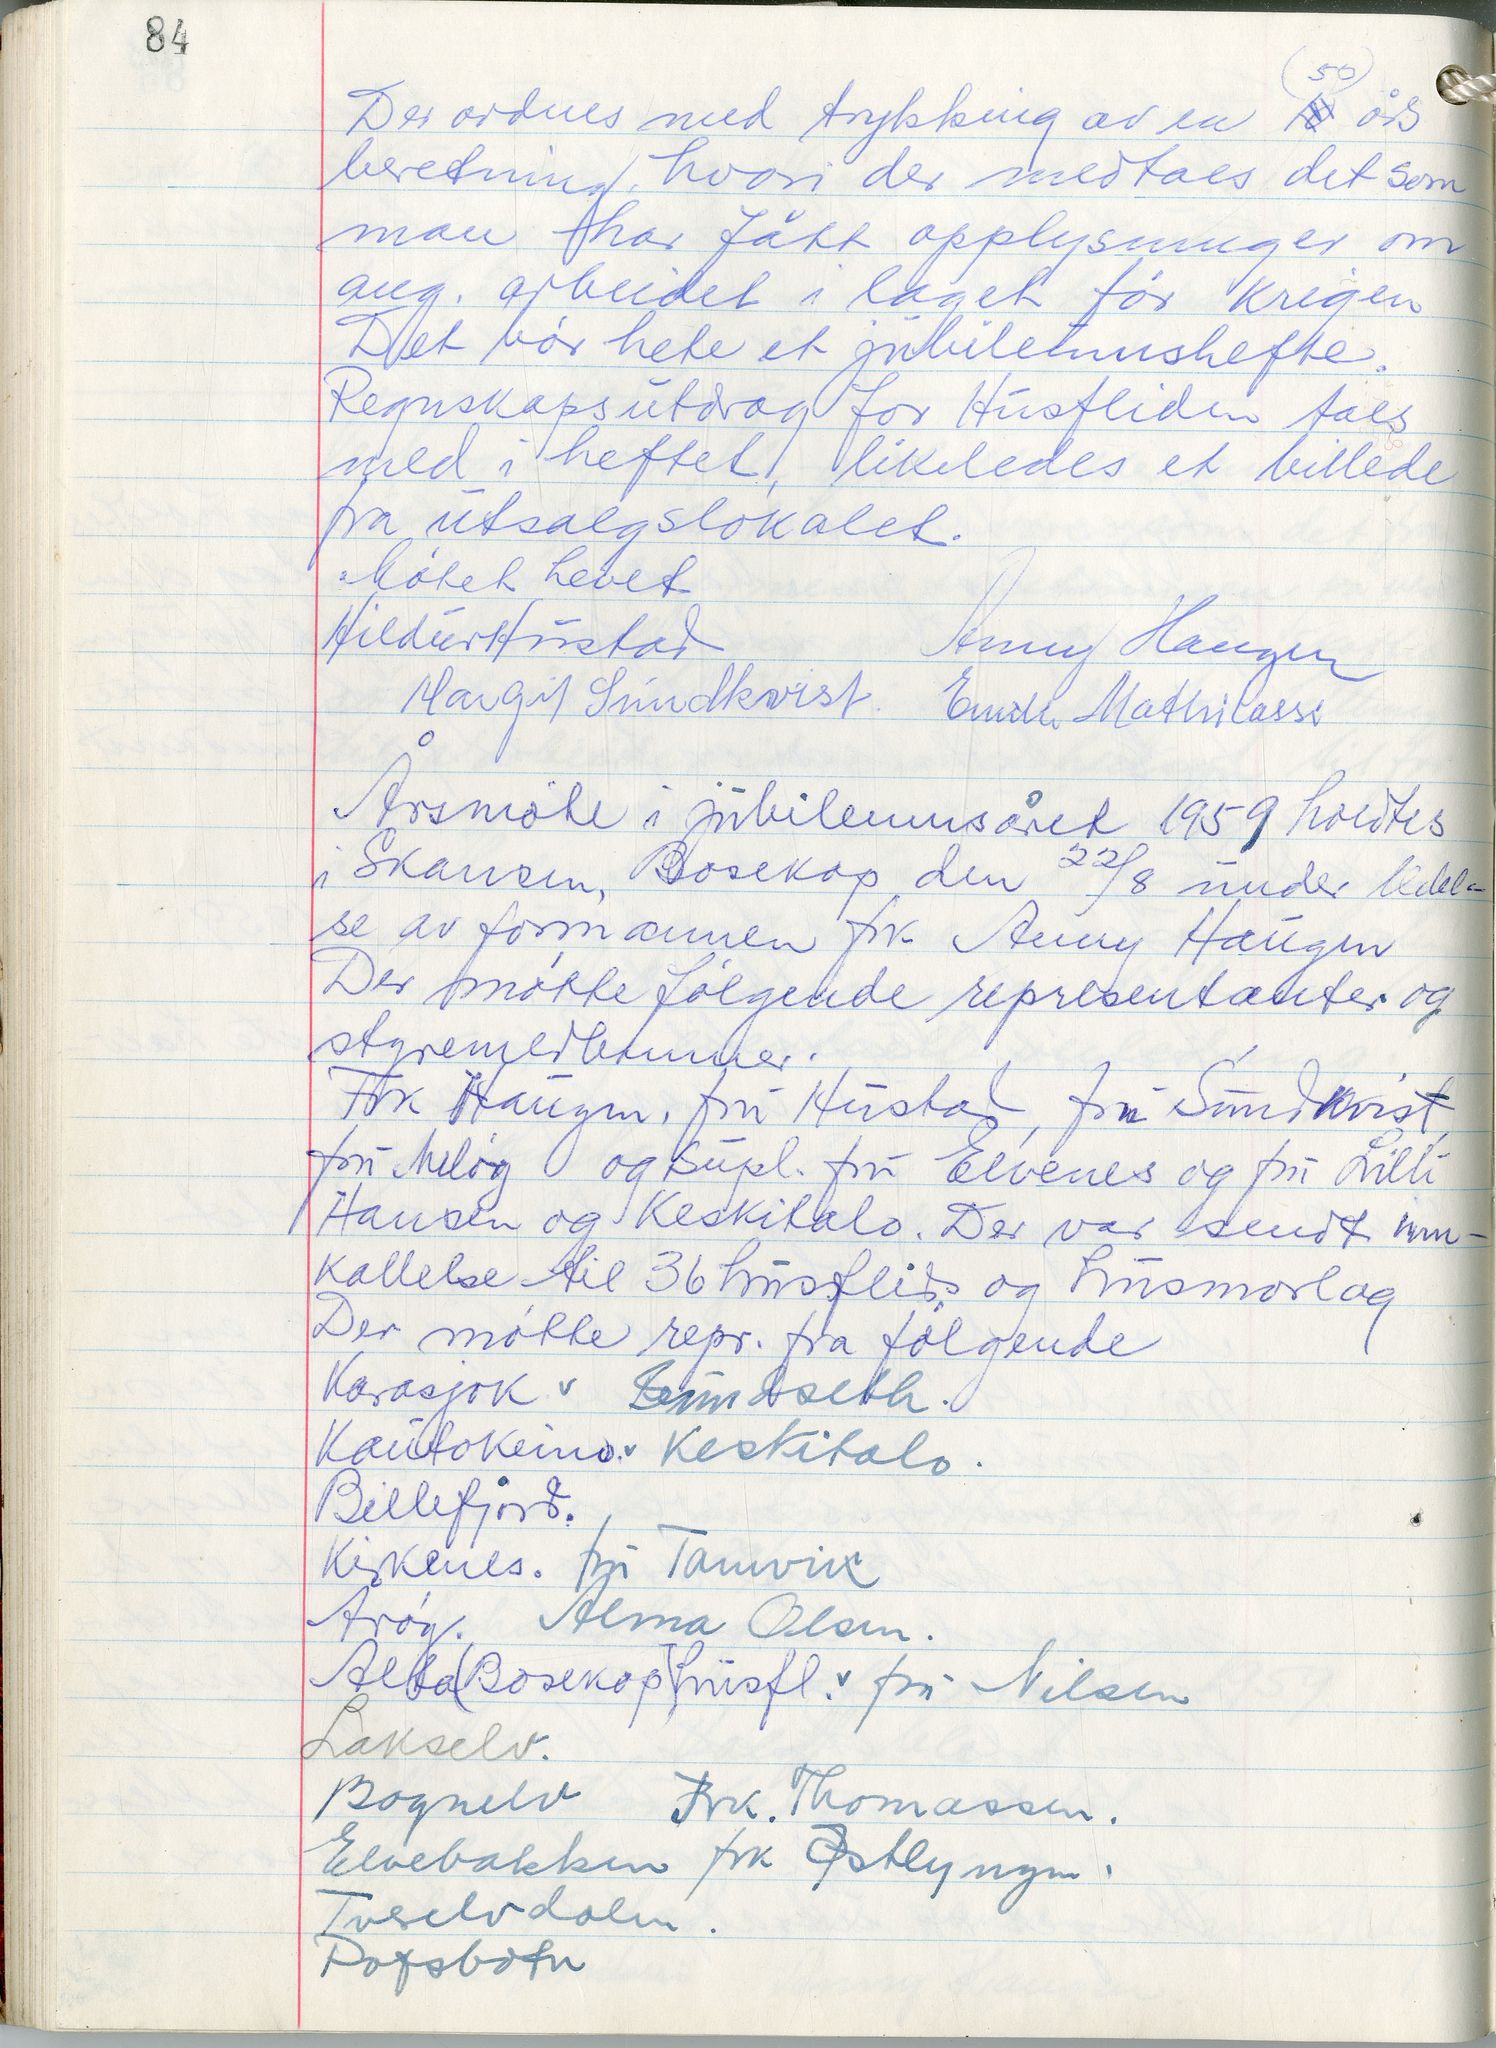 84
(50)
Der ordnes med trykking av en års
beretning, hvori der medtaes det som
man har fått opplysninger om
ang. arbeidet i laget før krigen
Det bør hete et jubileumshefte.
Regnskapsutdrag for Husfliden taes
med i heftet, likeledes et billede
fra utsalgslokalet.
Møtet hevet
Hildur Hustad Anny Haugen
Margit Sundkvist. Mathilassi
Årsmøte i jubileumsåret 1959 holdtes
i Skansen, Bosekop den 22/8 under ledel-
se av formannen frk Anny Haugen
Der møtte følgende representanter og
styremedlemmer.
Frk Haugen, fru Hustad, fru Sundkvist,
fru Meløy og supl. fru Elvenes og fru Lilli
Hansen og Keskitalo. Der var sendt inn-
kallelse til 36 husflids og husmorlag
Der møtte repr. fra følgende
Karasjok v
Kautokeino. v Keskitalo.
Billefjord.
Kirkenes. fru Tamvik
Årøy. Alma Olsen.
Alta (Bosekop) husfl. v fru Nilsen
Lakselv.
Bognelv Frk. Thomassen.
Elvebakken frk Østlyngen.
Tverelvdalen.
Rafsbotn